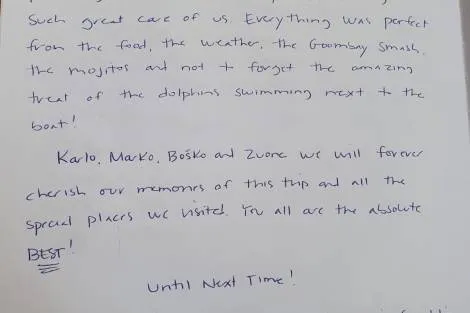 Such great care of us. Everything was perfect
from the food, the weather, the Goombay Smash,
the mojitos and not to forget the amazing
treat of the dolphins swimming next to the
boat!
Karlo, Marko, Boško and Zvone we will forever
cherish our memories of this trip and all the
special places we visited. You all are the absolute
BEST!
Until Next Time!